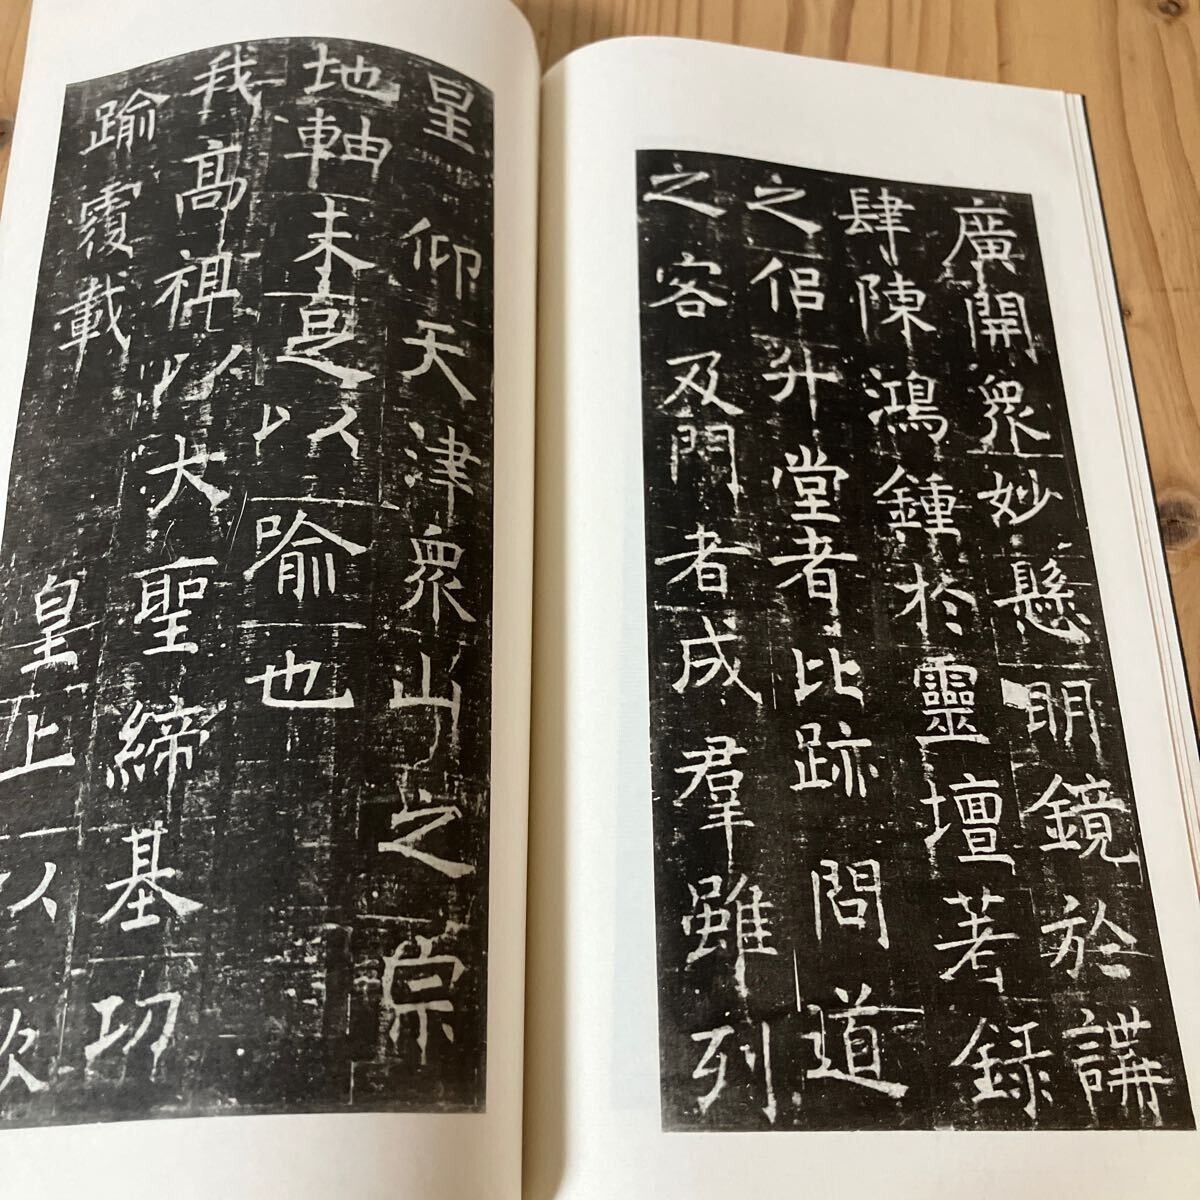 廣開衆妙懸明鏡於講
肆陳鴻鍾於靈壇著錄
之侶升堂者比跡問道
之客及門者成羣雖列
皇仰天津衆山之宗
地軸未足以喻也
我高祖以大聖締基功
踰覆載皇上以欽